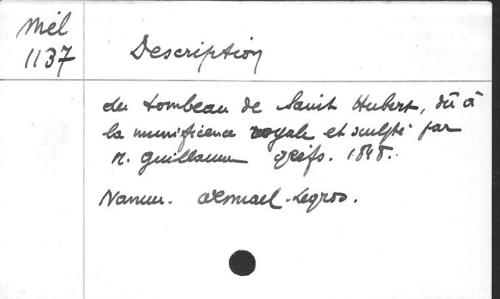 Mél
1137
Description
du tombeau de Saint Hubert, dû à
la munificence royale et sculpté par
M. Guillaume Geefs. 1848.
Namur. -Legros.